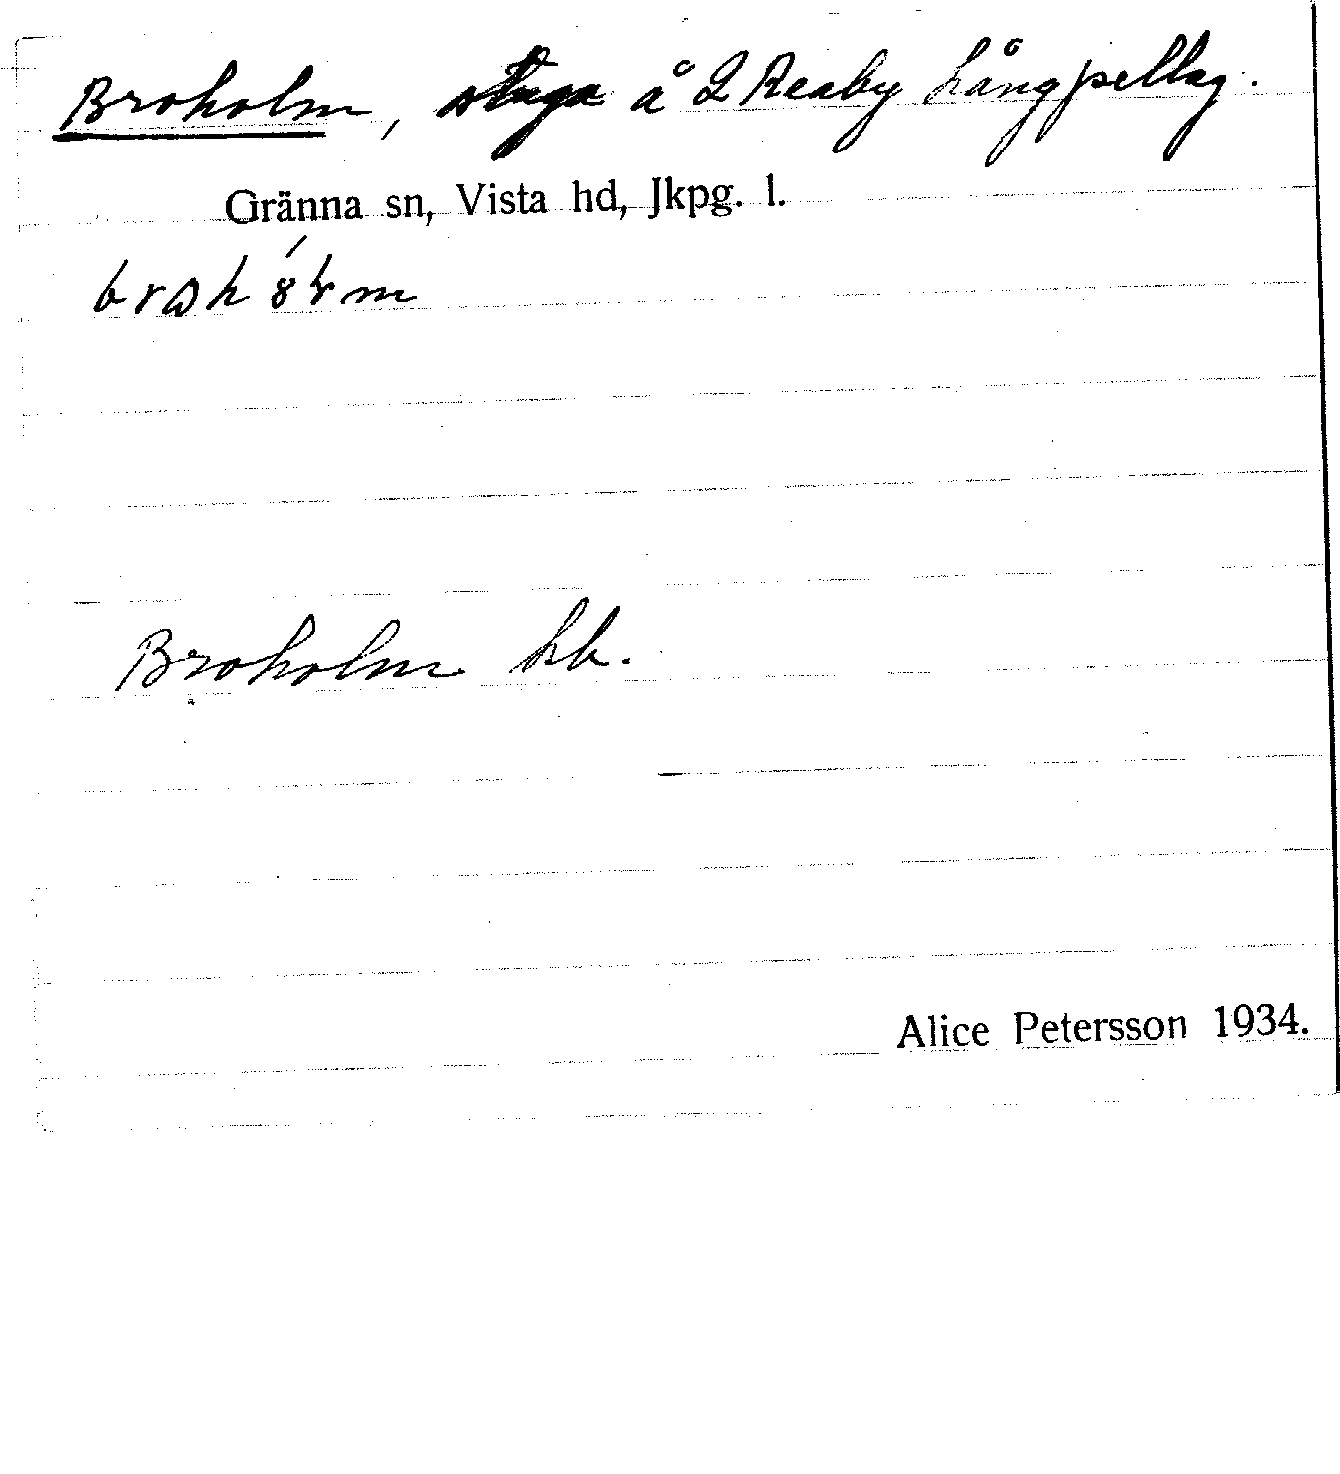 Broholm, stuga å 2 Reaby Långpellag.
Gränna sn, Vista hd, Jkpg. l.
Broholm hb.
Alice Petersson 1934.